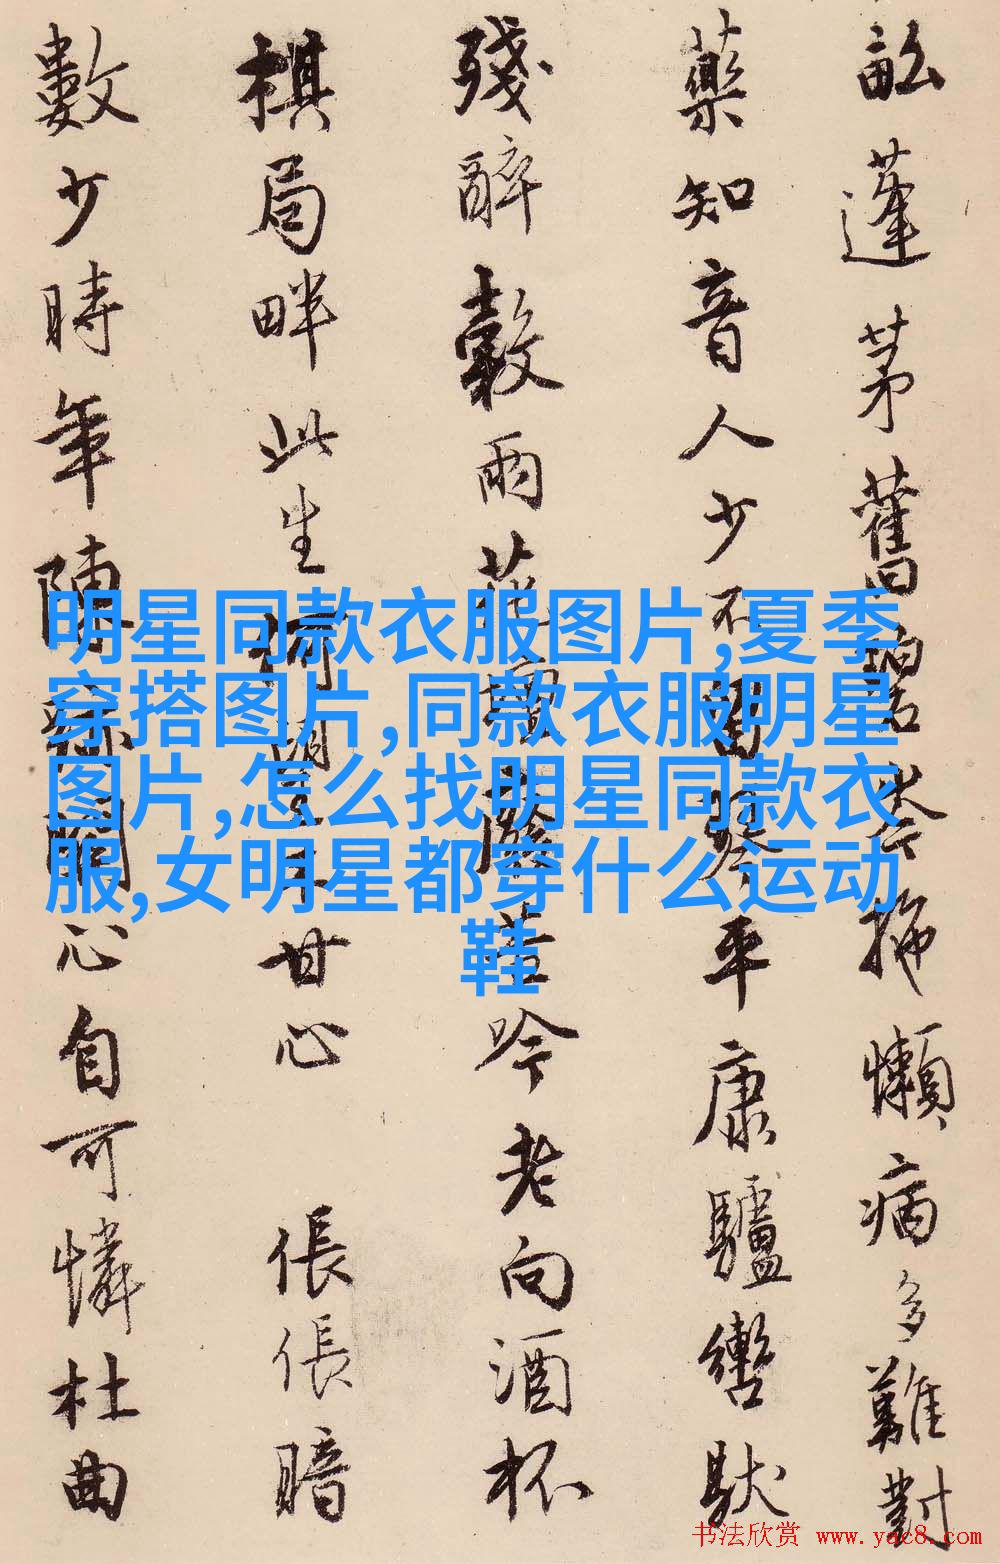 蓬茅舊拖懶病多難對
藥知音人少平康驢轡馱
殘醉穀雨花吟老向酒杯
棋局畔此生甘心 倀倀暗
數少時年陳關心自可憐杜曲
明星同款衣服图片,夏季
穿搭图片,同款衣服明星
图片,怎么找明星同款衣
服,女明星都穿什么运动
鞋
书法欣赏 www.yac8.com